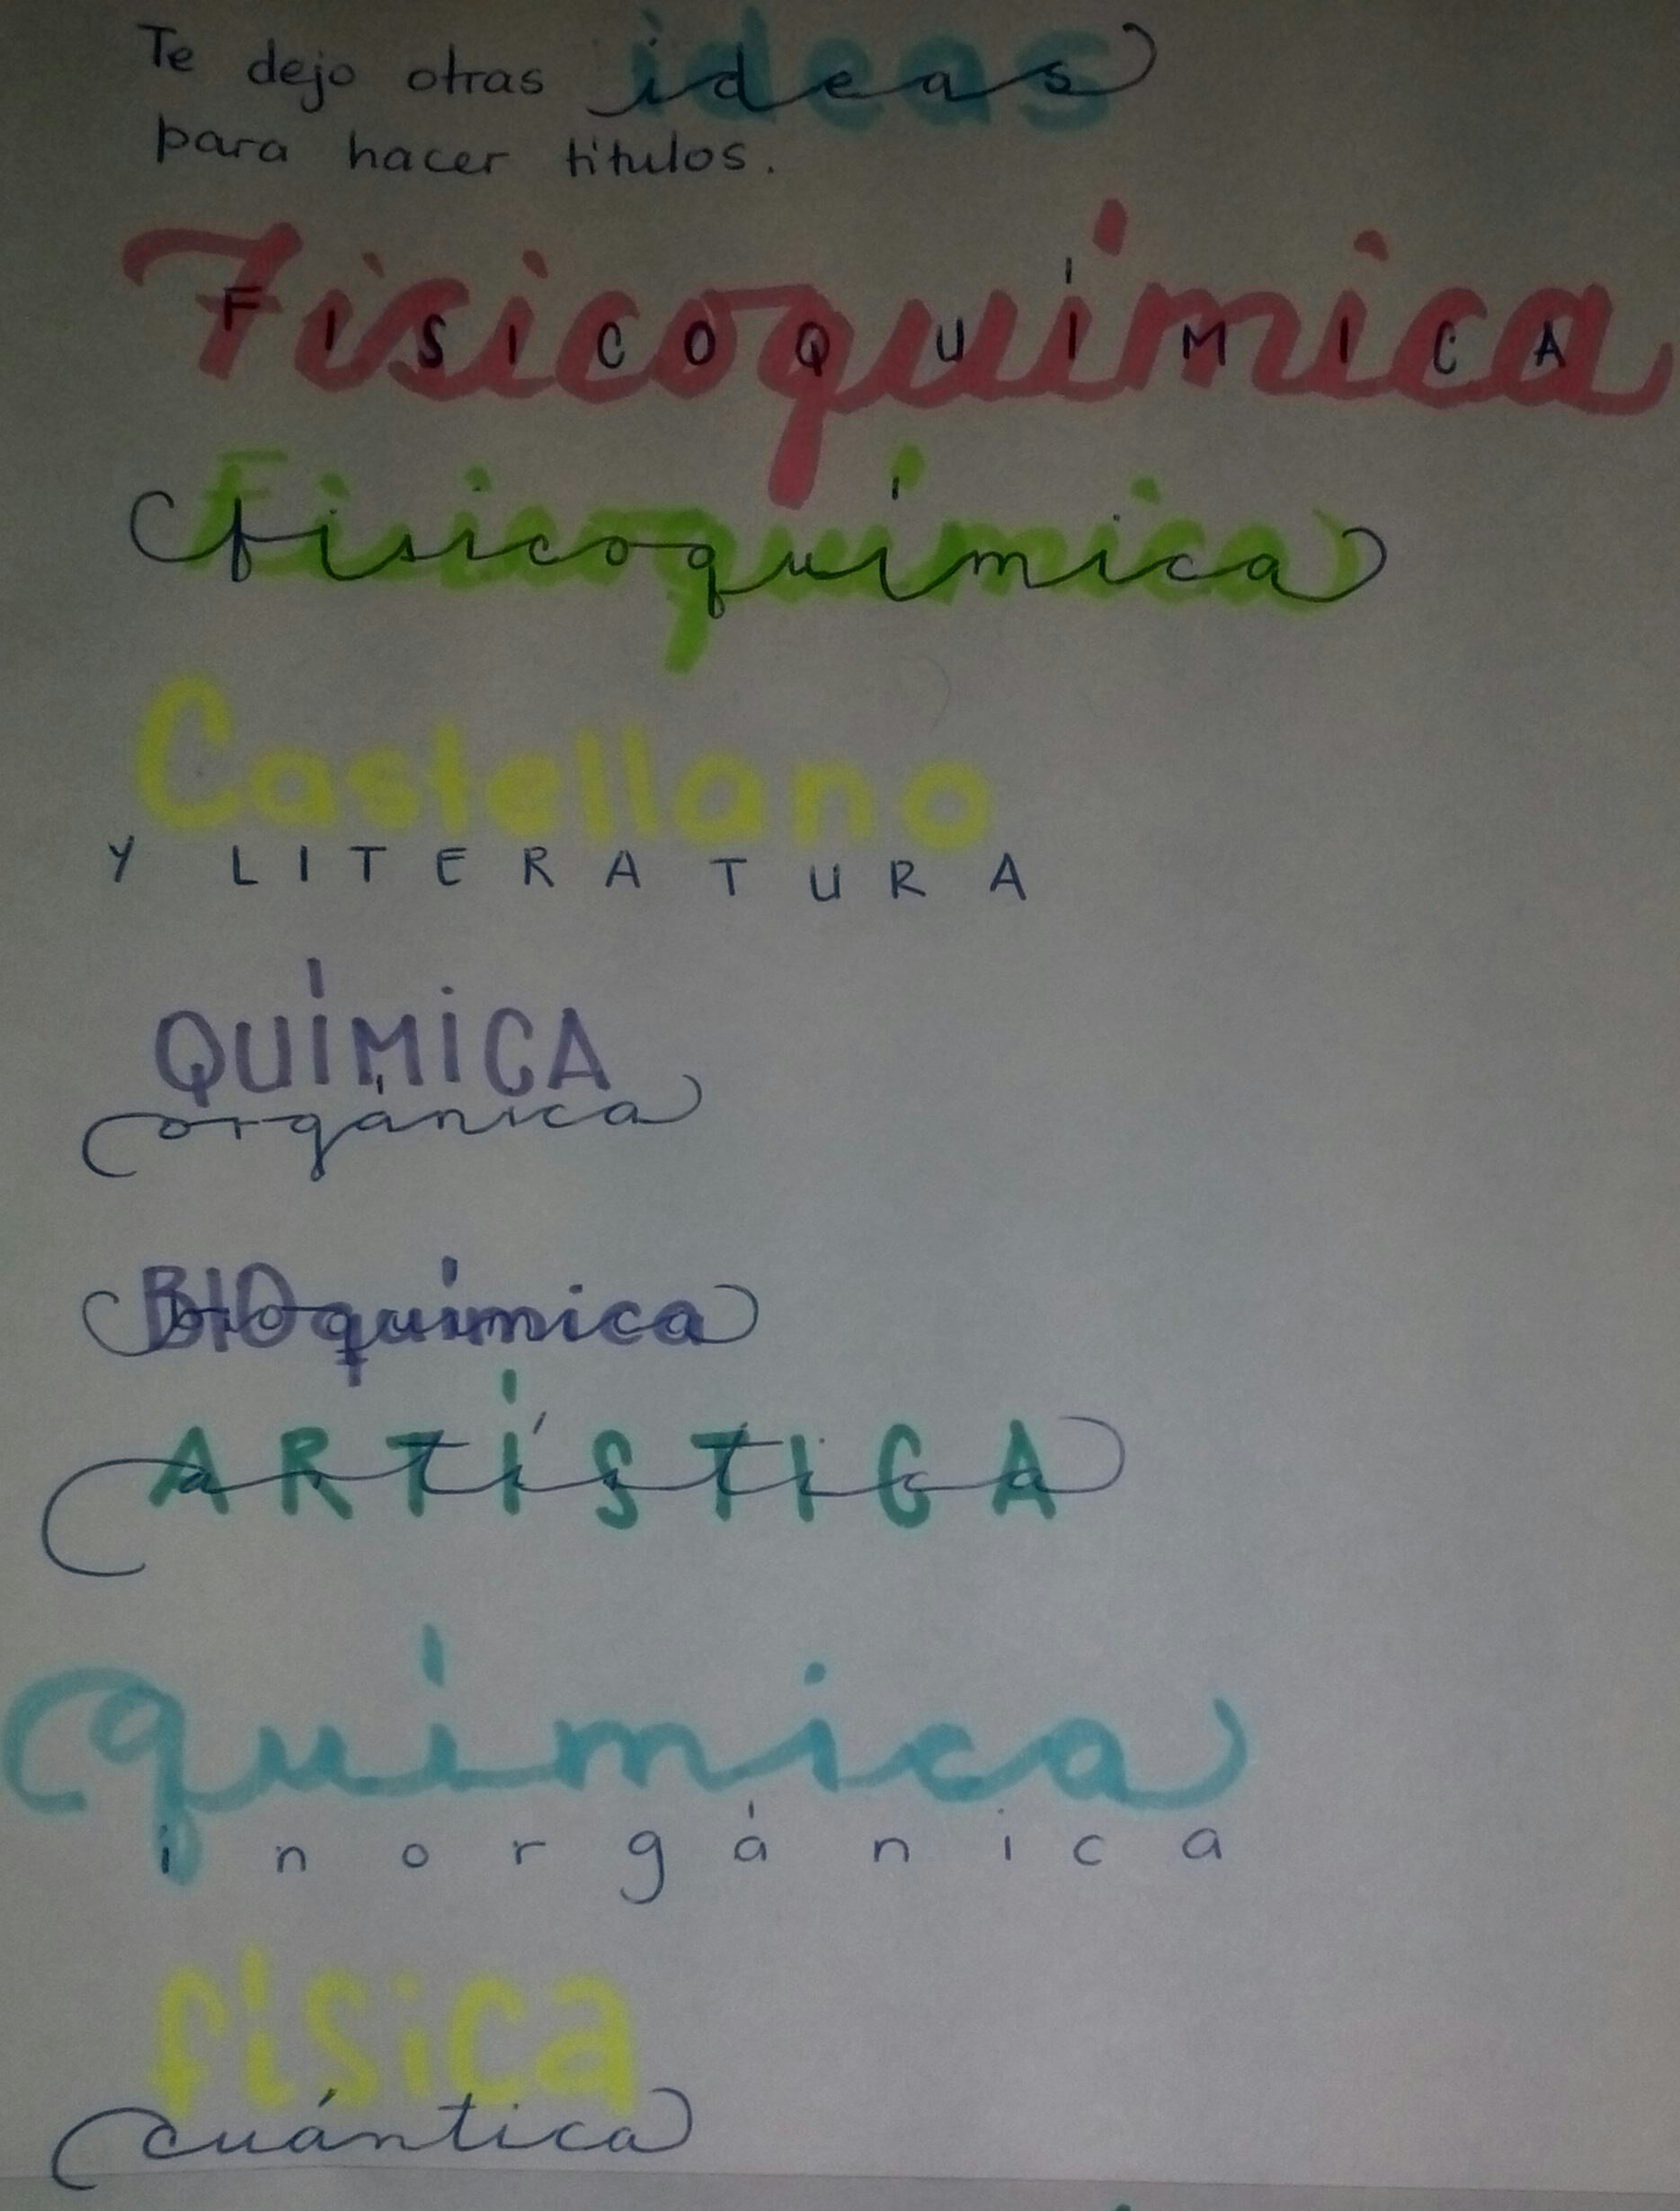 Te dejo otras ideas
para hacer títulos.
Fisicoquímica
FISICOQUÍMICA
Fisicoquímica
fisicoquímica
Castellano
Y LITERATURA
QUÍMICA
orgánica
BIOquímica
bioquímica
ARTÍSTICA
artística
química
inorgánica
física
cuántica